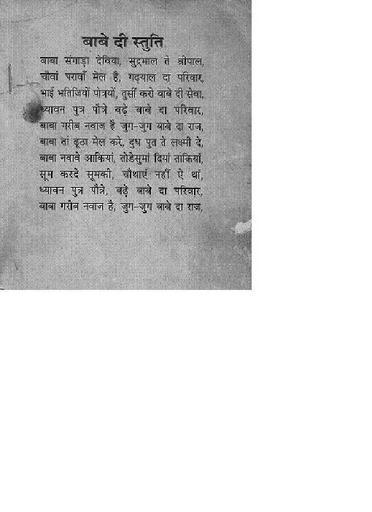 बाबे दी स्तुति
बाबा संगाड़ा देविया, सुद्रमाल ते श्रीपाल,
चौवां परावाँ मेल है, गढ्याल दा परिवार,
भाई भतिजियों पोत्रयों, तुसीं करो बाबे दी सेवा,
ध्यावन पुत्र पौत्रे बढ़े बाबे दा परिवार,
बाबा गरीब नवाज है जुग-जुग बाबे दा राज,
बाबा तां दूठा मेल करे, दुध पुत ते लक्ष्मी दे,
बाबा नवावे आकियां, तोडेसुमां दियां ताकियां,
सूम करदे सूमकी, चौथाएं नहीं ऐ थां,
ध्यावन पुत्र पौत्रे, बढ़े बाबे दा परिवार,
बाबा गरीब नवाज है, जुग-जुग बाबे दा राज,